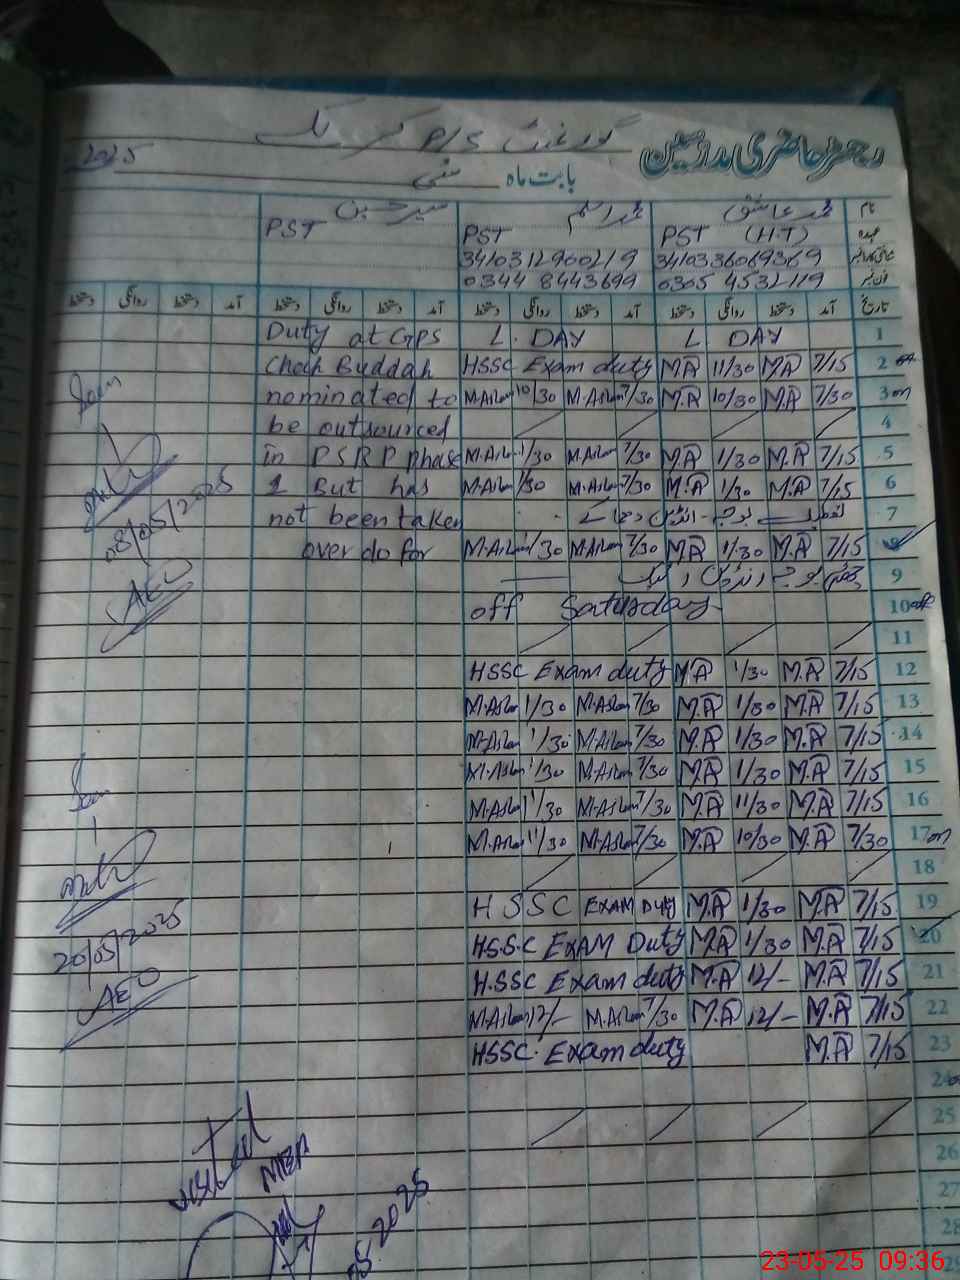 گورنمنٹ P/S
رجسٹر حاضری مدرسین
2025 بابت ماہ مئی
نام محمد عاشق محمد اسلم
عہدہ PST (H.T) PST PST
3410336069369 3410312960219
0305 4532119 0344 8443699
تاریخ آمد دستخط روانگی دستخط آمد دستخط روانگی دستخط آمد دستخط روانگی دستخط آمد دستخط روانگی دستخط
Duty at GPS L. DAY L. DAY 1
Chah Buddah HSSC Exam duty M.A 11/30 M.A 7/15 2
nominated to M.Aslam 10/30 M.Aslam 7/30 M.A 10/30 M.A 7/30 3
be outsourced 4
in PSRP phase M.Aslam 1/30 M.Aslam 7/30 M.A 1/30 M.A 7/15 5
1 But has M.Aslam 1/30 M.Aslam 7/30 M.A 1/30 M.A 7/15 6
not been taken 7
over do for M.Aslam 1/30 M.Aslam 7/30 M.A 1/30 M.A 7/15 8
08/05/2025
AEO
9
off Saturday 10
11
HSSC Exam duty M.A 1/30 M.A 7/15 12
M.Aslam 1/30 M.Aslam 7/30 M.A 1/30 M.A 7/15 13
M.Aslam 1/30 M.Aslam 7/30 M.A 1/30 M.A 7/15 14
M.Aslam 1/30 M.Aslam 7/30 M.A 1/30 M.A 7/15 15
M.Aslam 11/30 M.Aslam 7/30 M.A 11/30 M.A 7/15 16
M.Aslam 11/30 M.Aslam 7/30 M.A 10/30 M.A 7/30 17
18
HSSC EXAM Duty M.A 1/30 M.A 7/15 19
20/05/2025 H.S.S.C EXAM Duty M.A 1/30 M.A 7/15 20
AEO H.SSC Exam duty M.A 12/- M.A 7/15 21
M.Aslam 12/- M.Aslam 7/30 M.A 12/- M.A 7/15 22
HSSC. Exam duty M.A 7/15 23
24
25
26
27
28
visited
MEA
2025
23-05-25 09:36